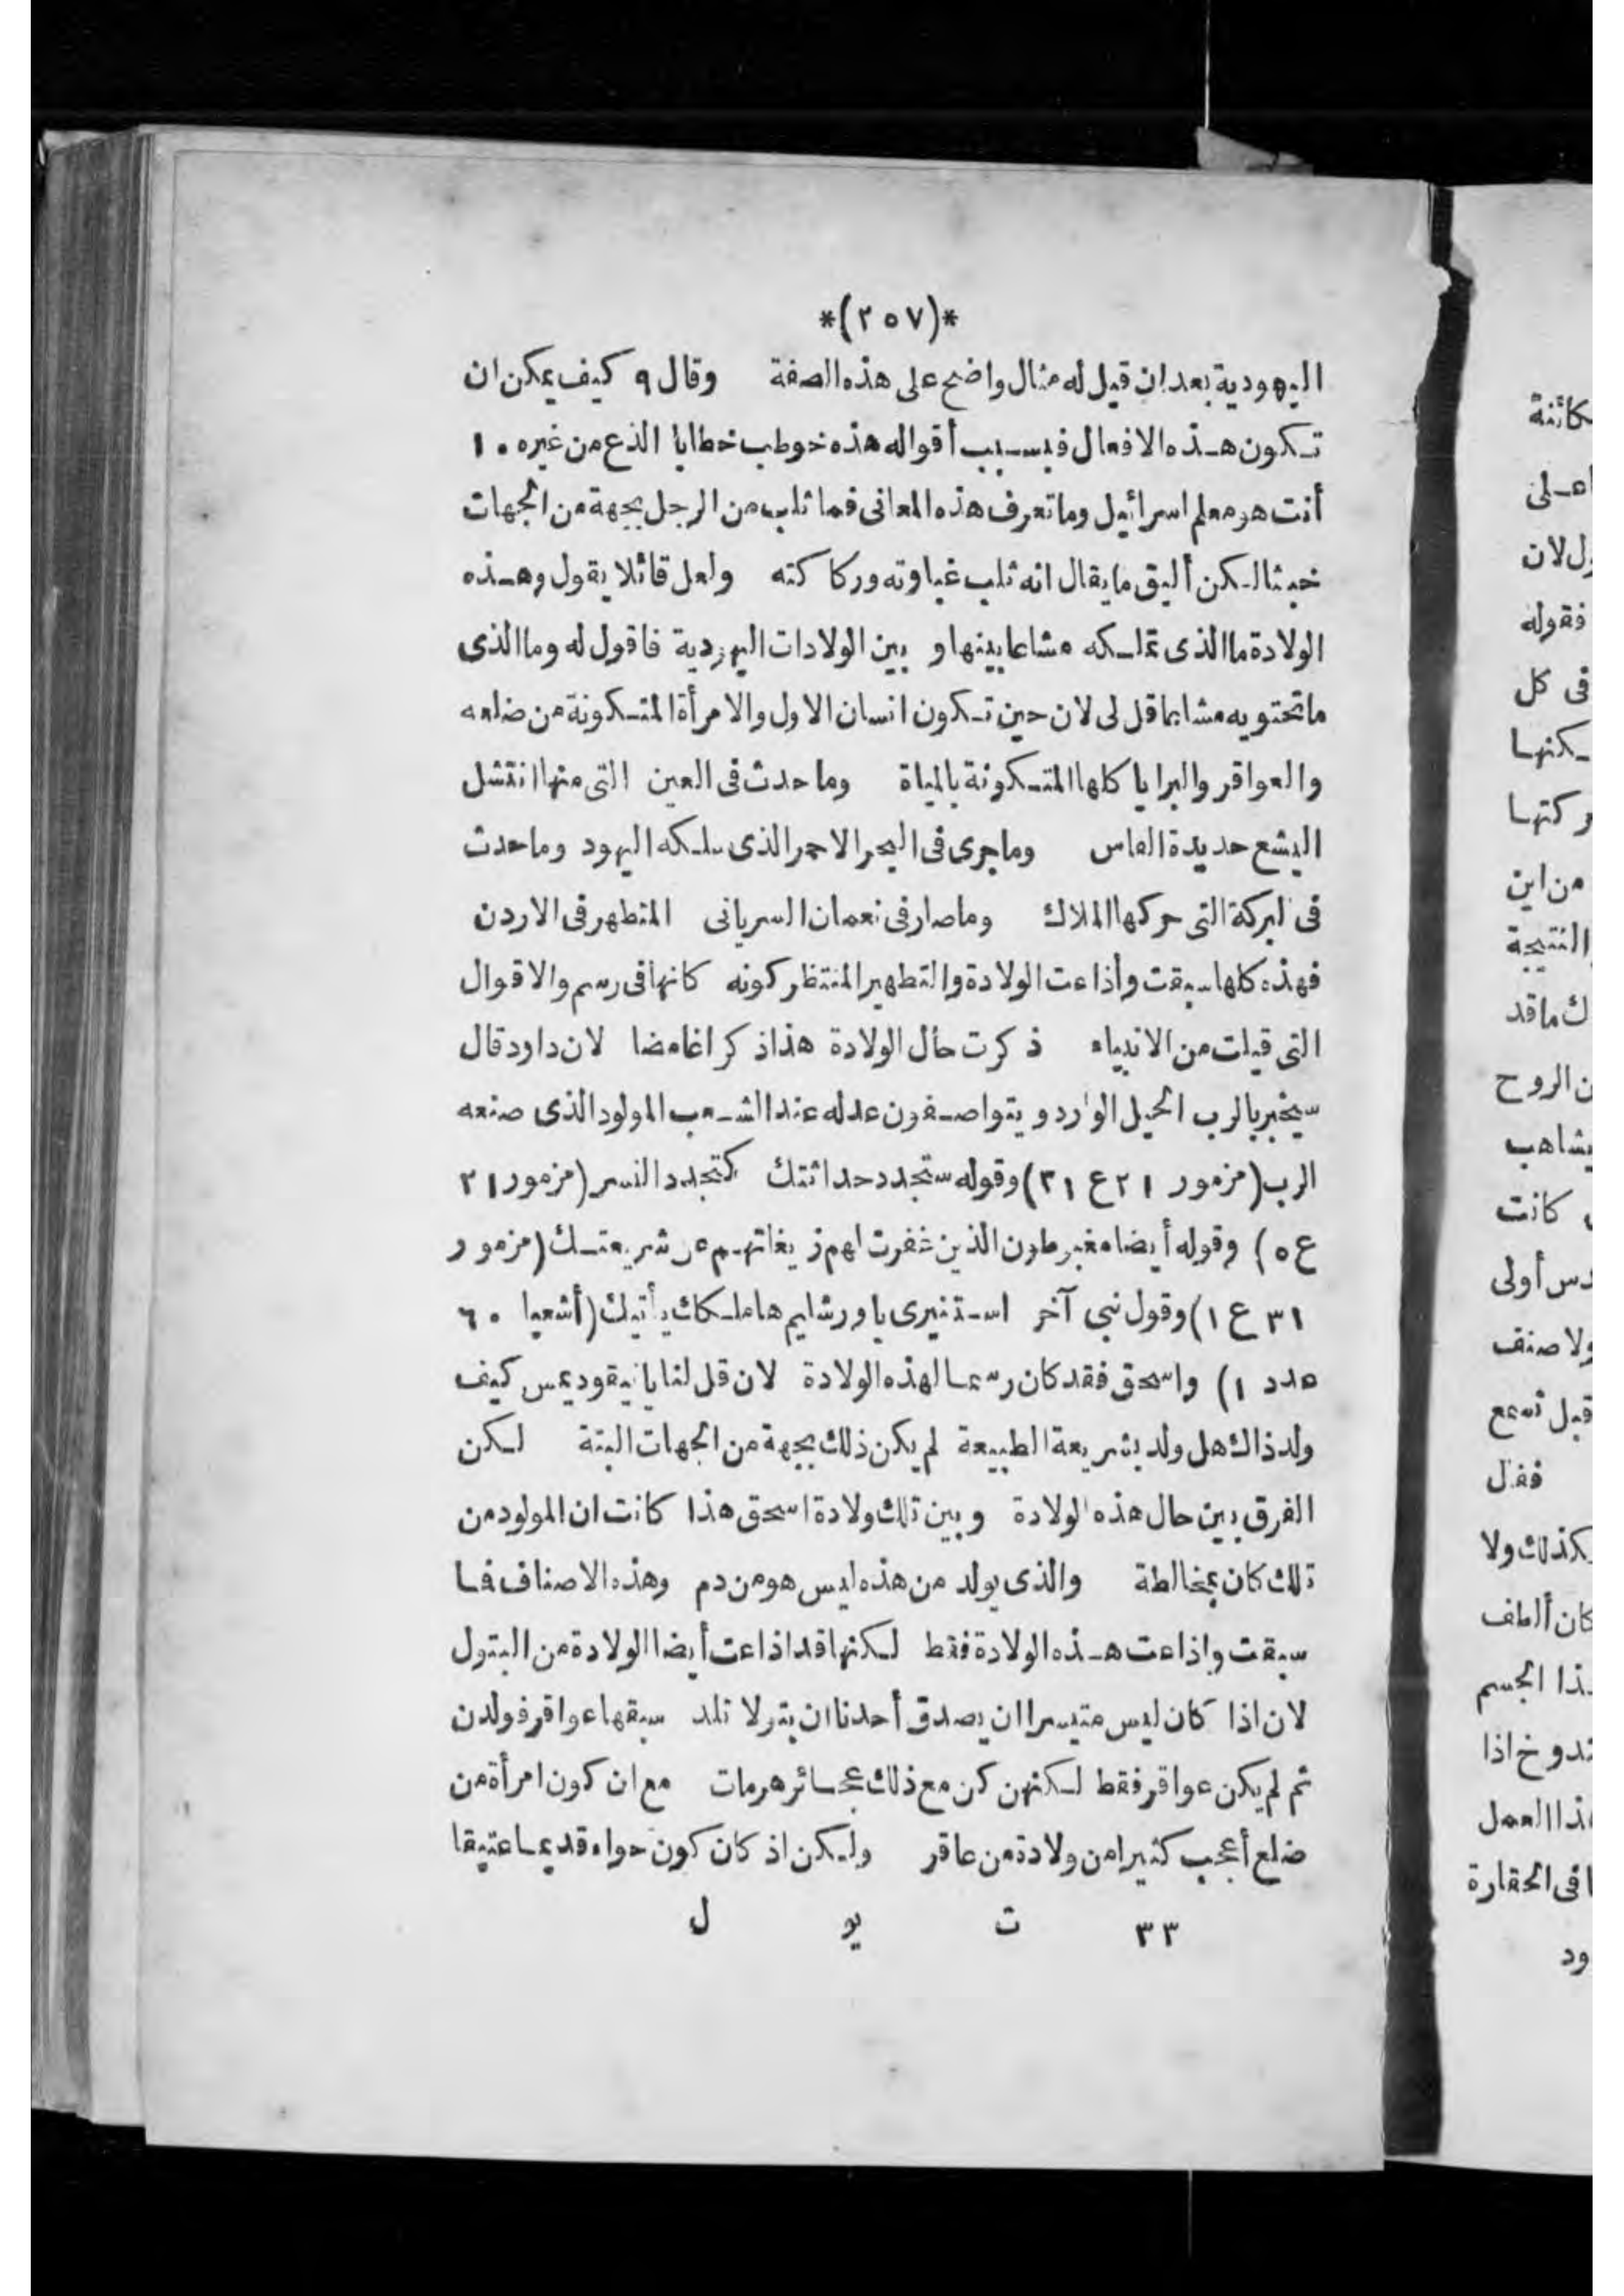 *(٢٥٧)*
اليهودية بعد ان قيل له مثال واضح على هذه الصفة وقال ٩ كيف يمكن ان
تكون هذه الافعال فبسبب أقواله هذه خوطب خطابا الذع من غيره ١٠
أنت هو معلم اسرائيل وما تعرف هذه المعانى فما ثلب من الرجل بجهة من الجهات
خبثا لكن أليق ما يقال انه ثلب غباوته وركاكته ولعل قائلا يقول وهذه
الولادة ما الذى تملكه مشاعا بينها و بين الولادات اليهودية فاقول له وما الذى
ما تحتويه مشابها قل لى لان حين تكون انسان الاول والامرأة المتكونة من ضلعه
والعواقر والبرايا كلها المتكونة بالمياة وما حدث فى العين التى منها انتشل
اليشع حديدة الفاس وما جرى فى البحر الاحمر الذى سلكه اليهود وما حدث
فى البركة التى حركها الملاك وما صار فى نعمان السريانى المتطهر فى الاردن
فهذه كلها سبقت وأذاعت الولادة والتطهير المنتظر كونه كانها فى رسم والاقوال
التى قيلت من الانبياء ذكرت حال الولادة هذا ذكرا غامضا لان داود قال
سيخبر بالرب الجيل الوارد و يتواصفون عدله عند الشعب المولود الذى صنعه
الرب (مزمور ٢١ ع ٣١) وقوله ستجدد حداثتك كتجدد النسر (مزمور ٢١
ع ٥) وقوله أيضا مغبوطون الذين غفرت لهم زيغاتهم عن شريعتك (مزمور
٣١ ع ١) وقول نبى آخر استنيرى يا ورشليم هاملكك يأتيك (أشعيا ٦٠
عدد ١) واسحق فقد كان رسما لهذه الولادة لان قل لنا يا نيقوديمس كيف
ولد ذاك هل ولد بشريعة الطبيعة لم يكن ذلك بجهة من الجهات البتة لكن
الفرق بين حال هذه الولادة و بين تلك ولادة اسحق هذا كانت ان المولود من
تلك كان بمخالطة والذى يولد من هذه ليس هو من دم وهذه الاصناف فما
سبقت واذاعت هذه الولادة فقط لكنها قد اذاعت أيضا الولادة من البتول
لان اذا كان ليس متيسرا ان يصدق أحدنا ان بتولا تلد سبقها عواقر فولدن
ثم لم يكن عواقر فقط لكنهن كن مع ذلك عجائز هرمات مع ان كون امرأة من
ضلع أعجب كثيرا من ولادة من عاقر ولكن اذ كان كون حواء قديما عتيقا
٣٣ ت يو ل
كائنة
اعلى
ل لان
فقوله
فى كل
كنها
ركتها
من اين
النتيجة
ك ما قد
ن الروح
يشاهب
كانت
دس أولى
ولا صنف
قبل تسمع
فقال
كذلك ولا
كان ألطف
ذا الجسم
ندوخ اذا
ذا العمل
فى الحقارة
ود